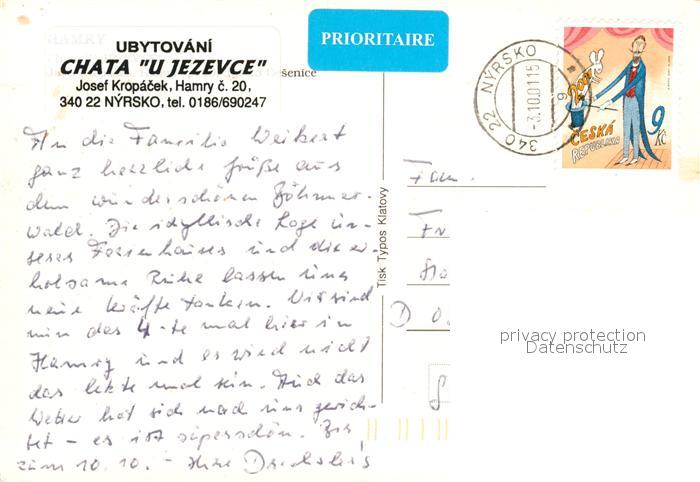 PRIORITAIRE
UBYTOVÁNÍ
CHATA "U JEZEVCE"
Josef Kropáček, Hamry č. 20,
340 22 NÝRSKO, tel. 0186/690247
HAMRY
Dešenice
340 22 NÝRSKO
-3.10.01 15
2001
ČESKÁ
REPUBLIKA
9 Kč
An die Familie Weikert
ganz herzliche Grüße aus
dem wunderschönen Böhmer-
wald. Die idyllische Lage un-
seres Ferienhauses und die er-
holsame Ruhe lassen uns
neue Kräfte tanken. Wir sind
nun das 4-te mal hier in
Hamry und es wird nicht
das letzte mal sein. Auch das
Wetter hat sich nach uns gerich-
tet - es ist superschön. Bis
zum 10.10. - Ihre
Tisk Typos Klatovy
Fam.
Fr
D
privacy protection
Datenschutz